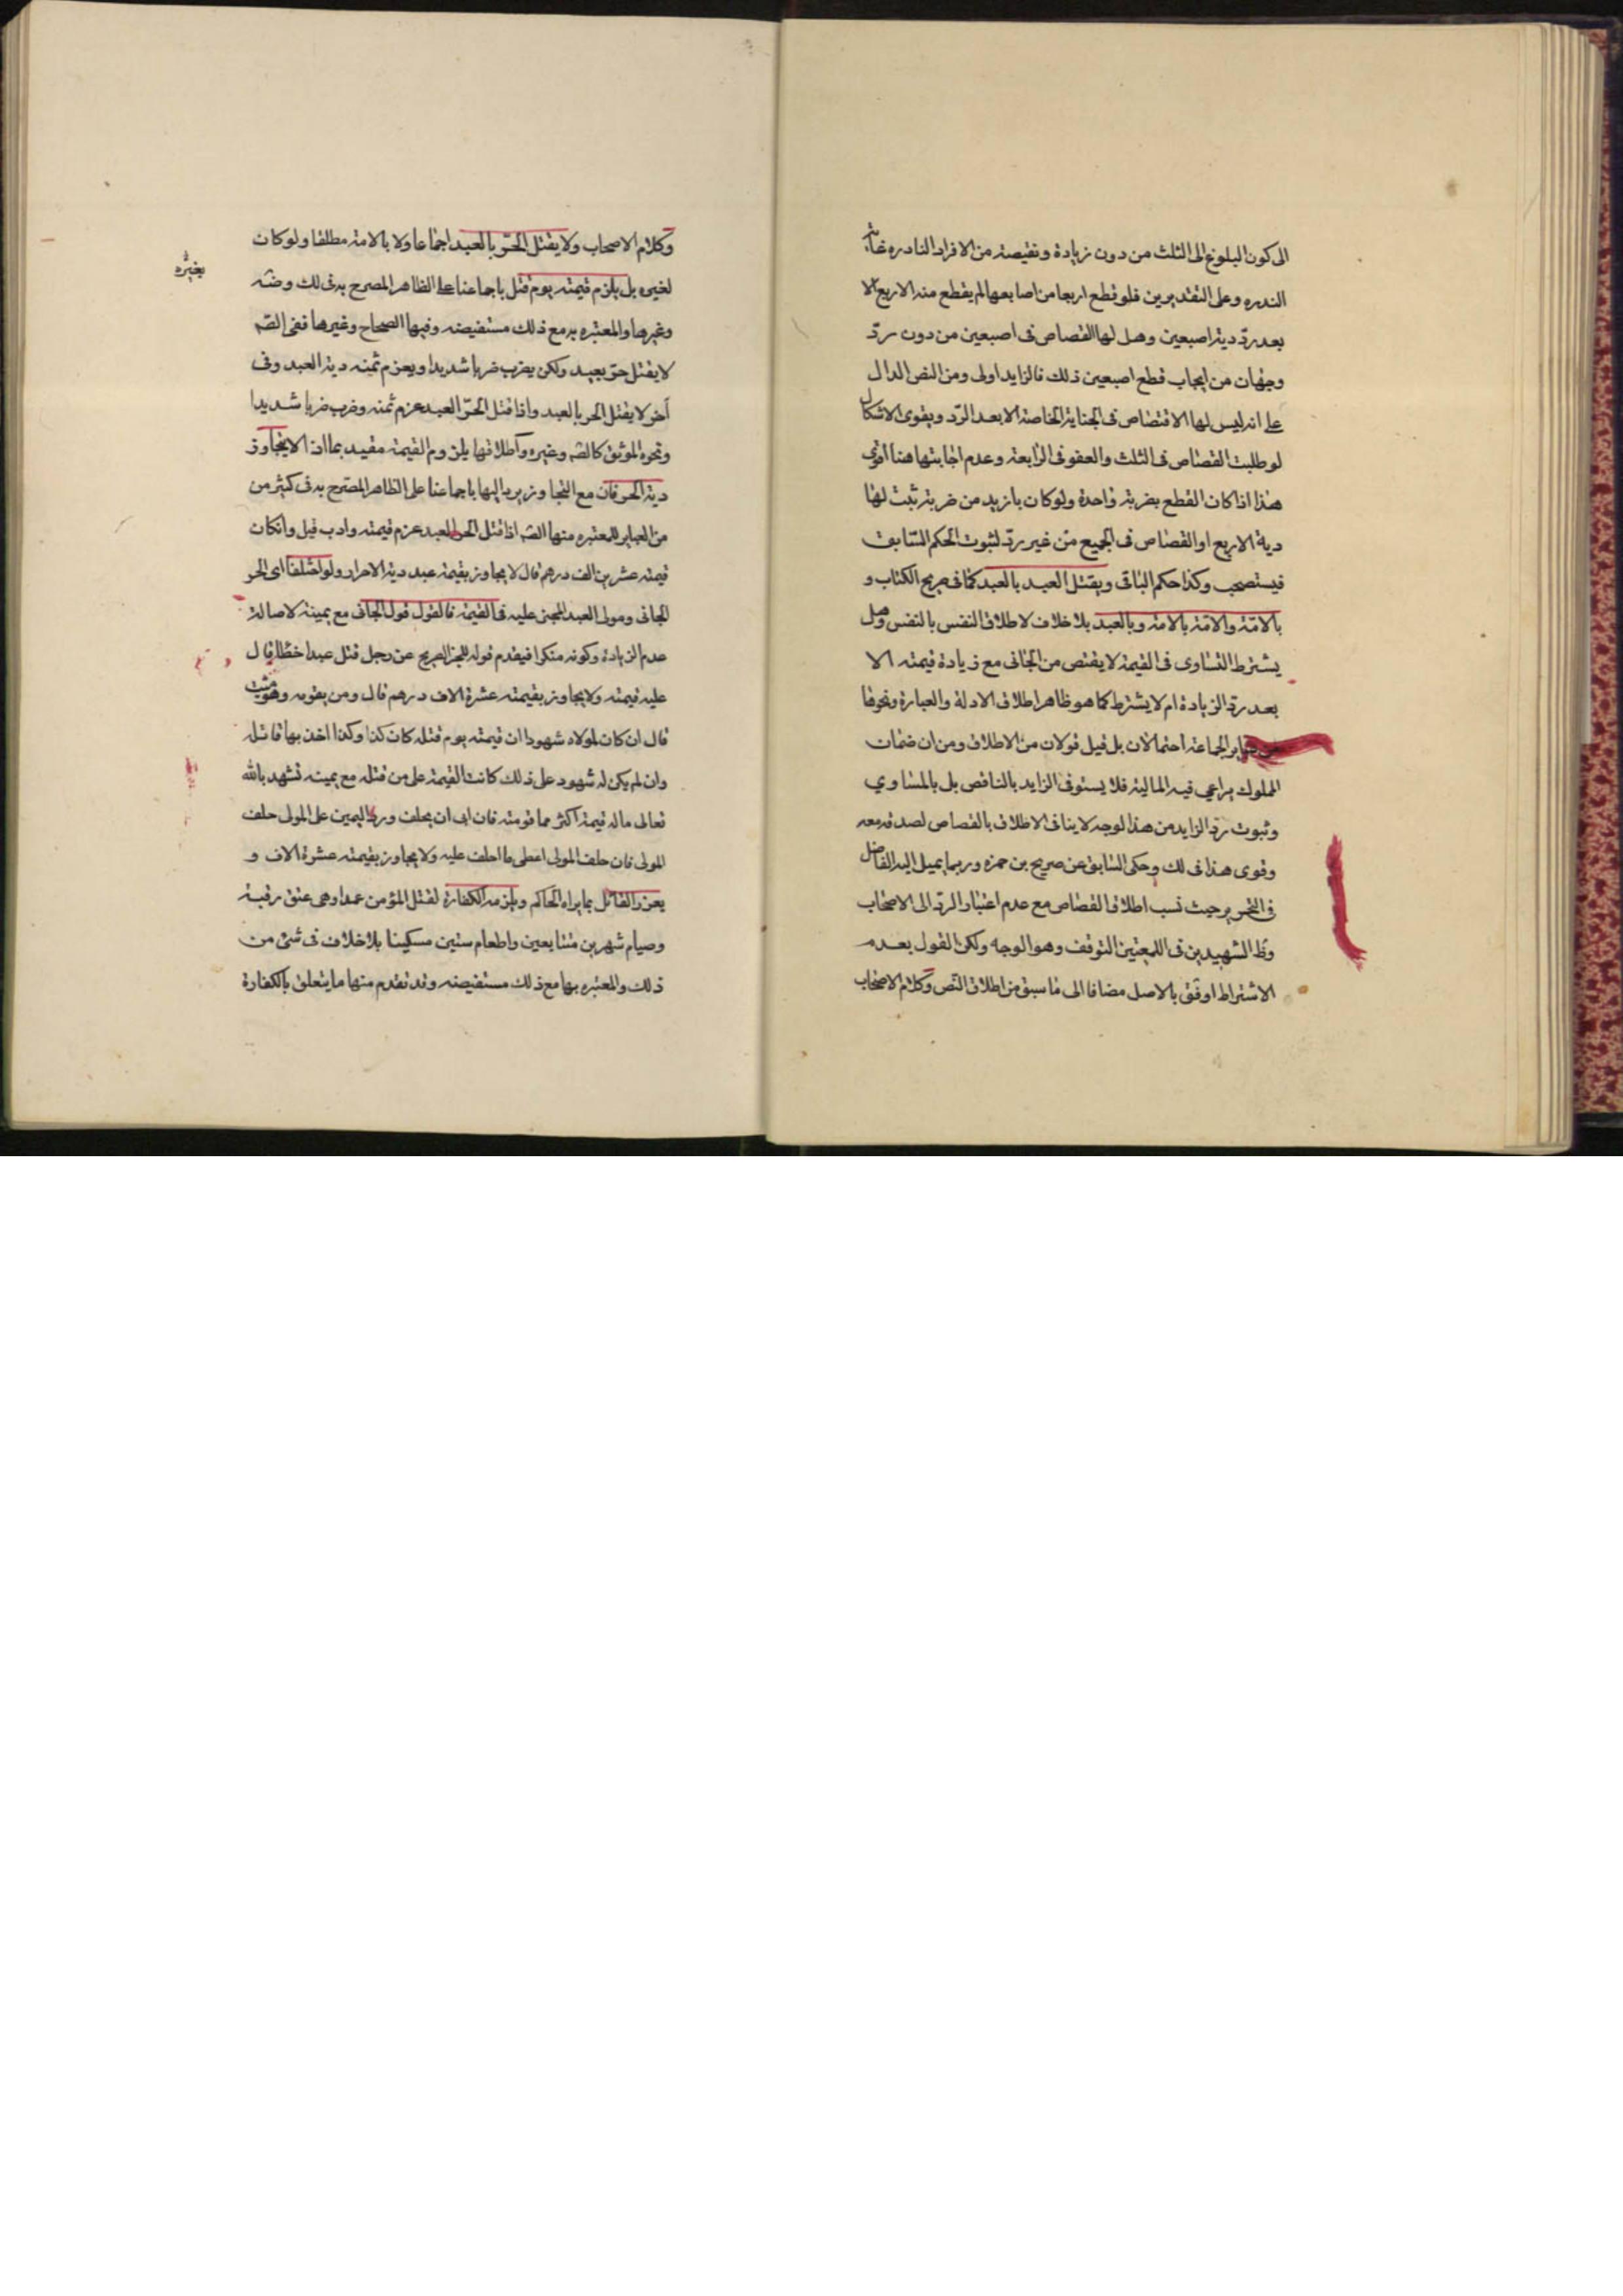 الى كون البلوغ الى الثلث من دون زيادة ونقيصة من الافراد النادره غاية
الندره وعلى التقديرين فلو قطع اربعا من اصابعها لم يقطع منه الاربع الا
بعد ردّ دية اصبعين وهل لها القصاص فى اصبعين من دون ردّ
وجهان من ايجاب قطع اصبعين ذلك فالزايد اولى ومن النص الدال
على انه ليس لها الاقتصاص فى الجناية الخاصة الا بعد الرّد ويقوى الاشكال
لو طلبت القصاص فى الثلث والعفو فى الرابعة وعدم اجابتها هنا اقوى
هذا اذا كان القطع بضربة واحدة ولو كان بازيد من ضربة ثبت لها
دية الاربع او القصاص فى الجميع من غير ردّ لثبوت الحكم السّابق
فيستصحب وكذا حكم الباقى ويقتل العبد بالعبد كما فى صريح الكتاب و
بالامة والامة بالامة وبالعبد بلا خلاف لاطلاق النفس بالنفس وهل
يشترط التساوى فى القيمة لا يقتص من الجانى مع زيادة قيمته الا
بعد ردّ الزيادة ام لا يشترط كما هو ظاهر اطلاق الادلة والعبارة ونحوها
من عباير الجماعة احتمالان بل قيل قولان من الاطلاق ومن ان ضمان
المملوك يراعي فيه المالية فلا يستوفى الزايد بالناقص بل بالمساوي
وثبوت ردّ الزايد من هذا الوجه لا ينافى الاطلاق بالقصاص لصدقه معه
وقوى هذا فى لك وحكى السّابق عن صريح بن حمزه وربما يميل اليه الفاضل
فى التحرير حيث نسب اطلاق القصاص مع عدم اعتبار الردّ الى الاصحاب
وظ الشهيدين فى اللمعتين التوقف وهو الوجه ولكن القول بعدم
الاشتراط اوفق بالاصل مضافا الى ما سبق من اطلاق النّص وكلام الاصحاب
وكلام الاصحاب ولا يقتل الحرّ بالعبد اجماعا ولا بالامة مطلقا ولو كان
لغيره بل يلزم قيمته يوم قتل باجماعنا على الظاهر المصرح به فى لك وضه
وغيرها والمعتبره به مع ذلك مستفيضه وفيها الصحاح وغيرها ففى الصّه
لا يقتل حرّ بعبد ولكن يضرب ضربا شديدا ويغرم ثمنه دية العبد وفى
آخر لا يقتل الحر بالعبد واذا قتل الحرّ العبد غرم ثمنه وضرب ضربا شديدا
ونحوه الموثق كالصّه وغيره واطلاقها يلزوم القيمة مقيد بما اذا لا يتجاوز
دية الحر فان مع التجاوز يرد اليها باجماعنا على الظاهر المصّرح به فى كثير من
من العباير للمعتبره منها الصّه اذا قتل الحر العبد غرم قيمته وادب قيل وانكان
قيمته عشرين الف درهم قال لا يجاوز بقيمة عبد دية الاحرار ولو اختلفا اى الحر
الجانى ومولى العبد المجنى عليه فى القيمة فالقول قول الجانى مع يمينه لاصالة
عدم الزيادة وكونه منكرا فيقدم قوله للخبر الصريح عن رجل قتل عبدا خطا قال
عليه قيمته ولا يجاوز بقيمته عشرة الاف درهم قال ومن يقومه وهو ميّت
قال ان كان لمولاه شهودا ان قيمته يوم قتله كان كذا وكذا اخذ بها قاتله
وان لم يكن له شهود على ذلك كانت القيمة على من قتله مع يمينه تشهد بالله
تعالى ماله قيمة اكثر مما قومته فان ابى ان يحلف ورد اليمين على المولى حلف
المولى فان حلف المولى اعطى ما احلف عليه ولا يجاوز بقيمته عشرة الاف و
يعزر القاتل بما يراه الحاكم ويلزمه الكفارة لقتل المؤمن عمدا وهى عتق رقبة
وصيام شهرين متتابعين واطعام ستين مسكينا بلا خلاف فى شئ من
ذلك والمعتبره بها مع ذلك مستفيضه وقد تقدم منها ما يتعلق بالكفارة
بغيره